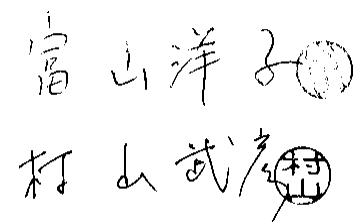 富山洋子
村山武彦 村山